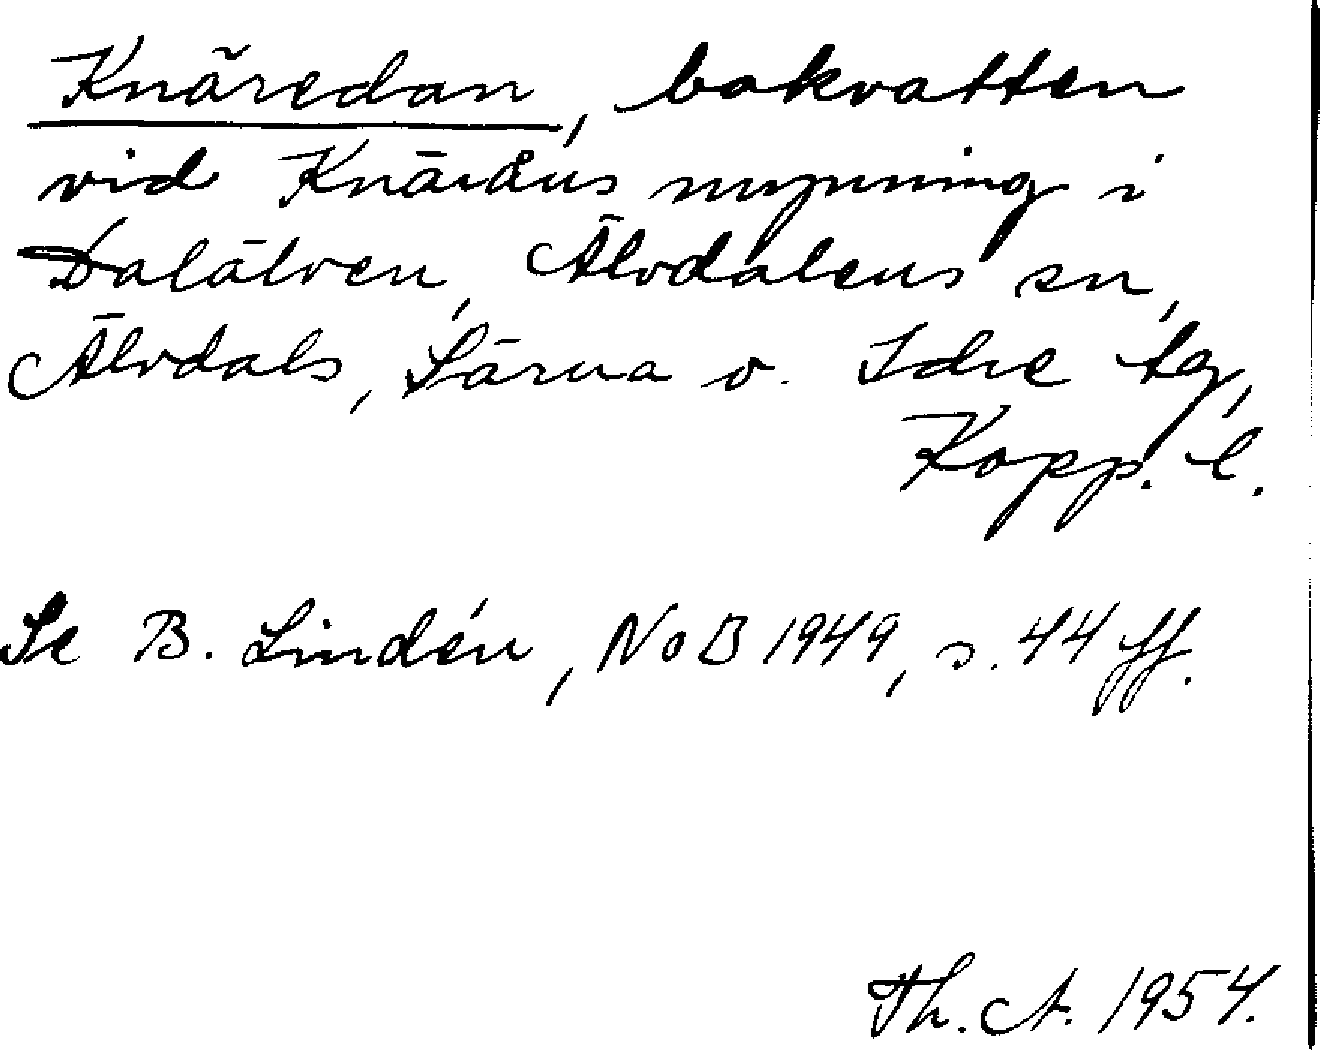 Knäredan, bakvatten
vid Knäråns mynning i
Dalälven, Älvdalens sn,
Älvdals, Särna o. Idre tg,
Kopp. l.
Se B. Lindén, NoB 1949, s. 44 ff.
Th. A. 1954.